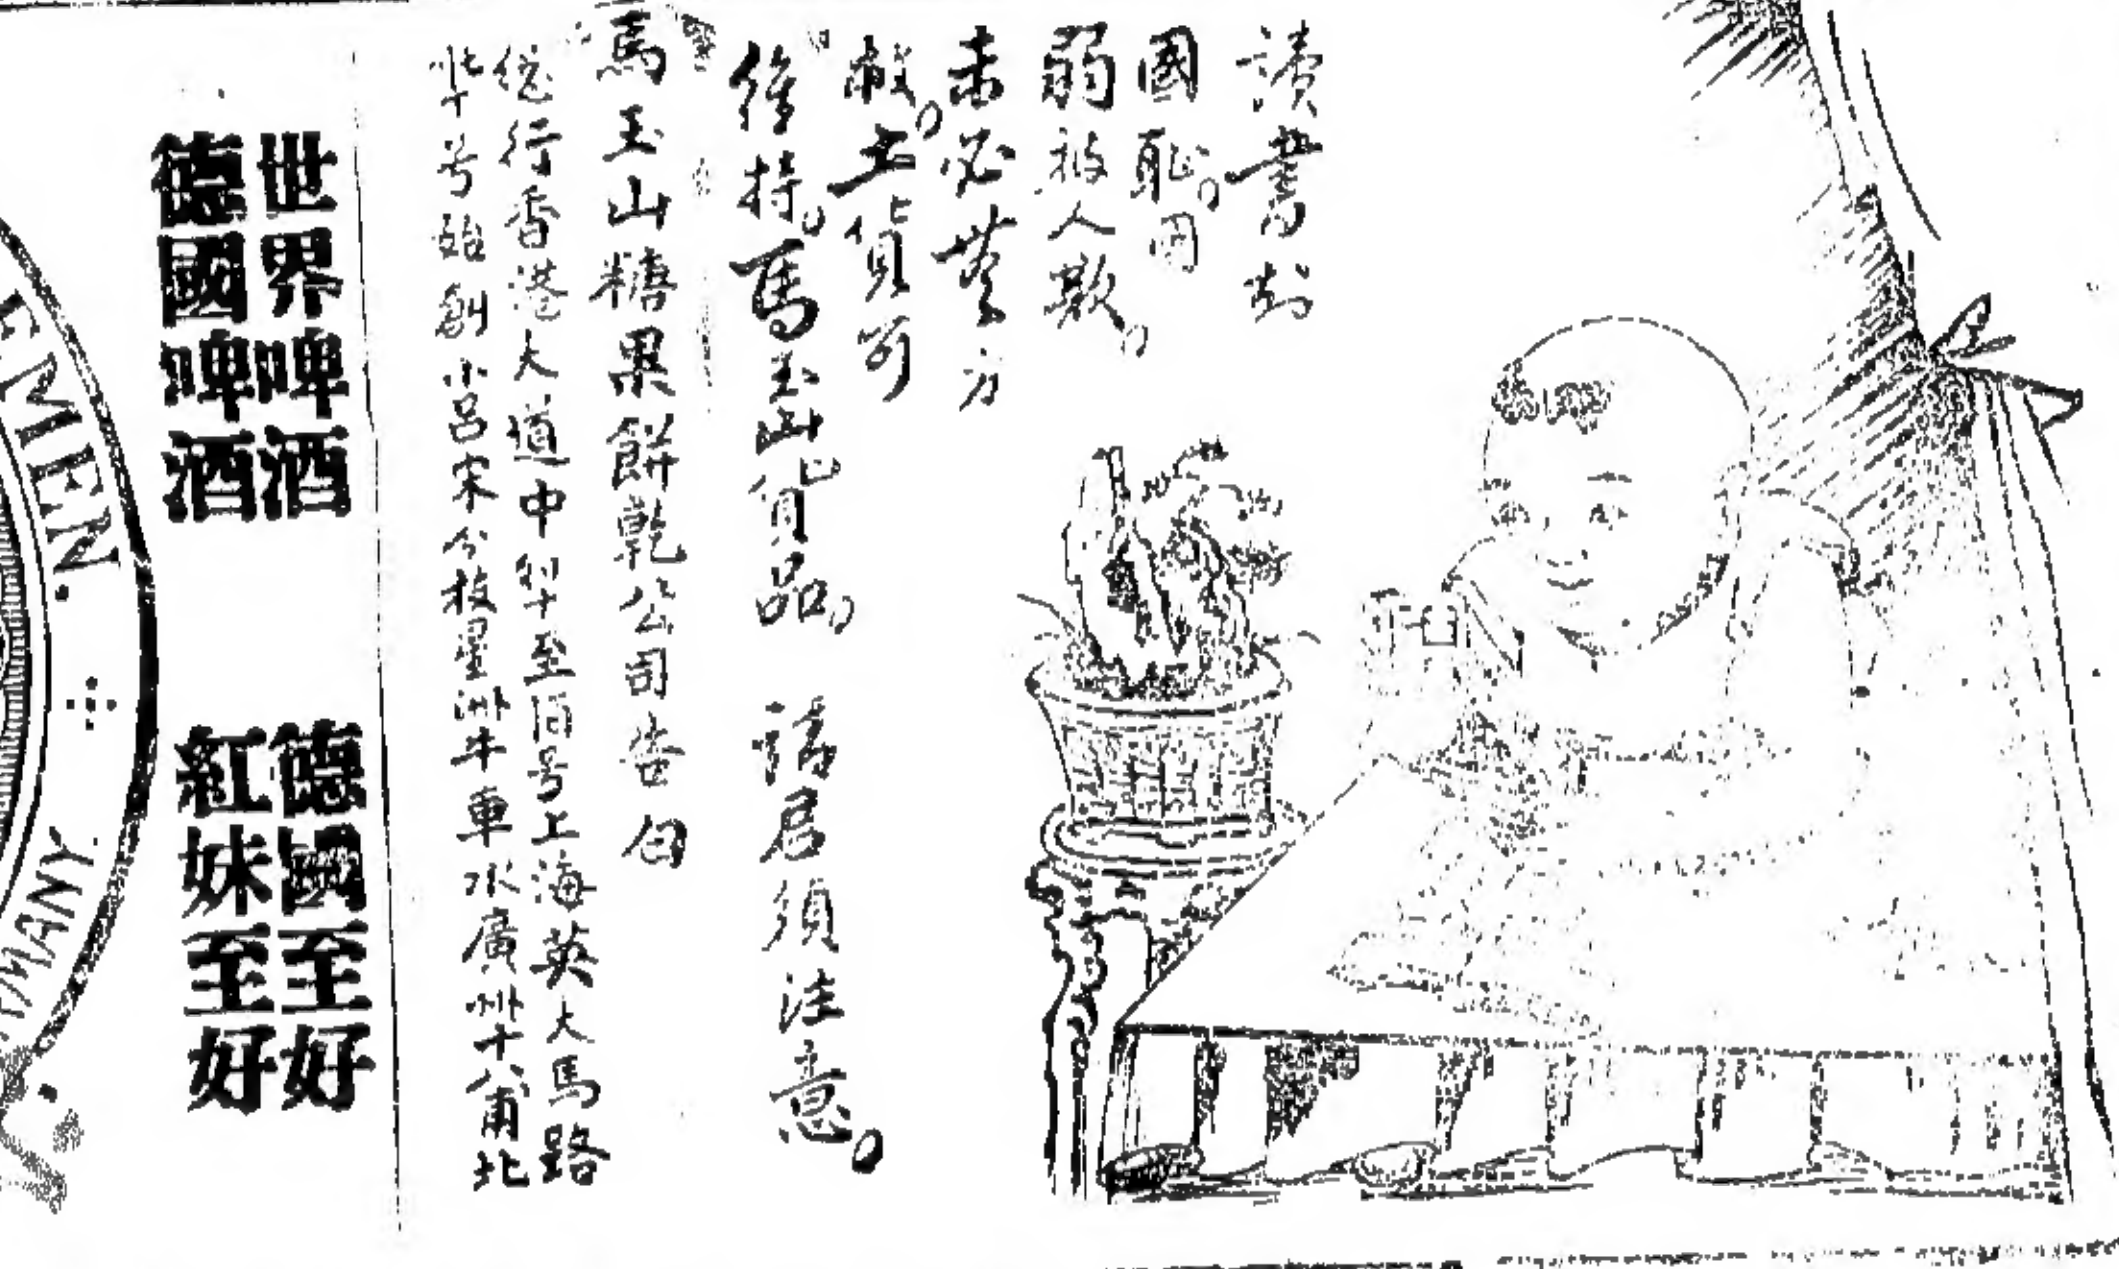 讀書封
國恥。国
弱被人欺。
未必無方
救。土貨可
維持。馬玉山貨品。諸君須注意。
馬玉山糖果餅乾公司告白
總行香港大道中四十至四十号上海英大馬路
始創小呂宋分枝星洲牛車水廣州十八甫北
世界啤酒 德國至好
德國啤酒 紅妹至好
EMEN.
RMANY.